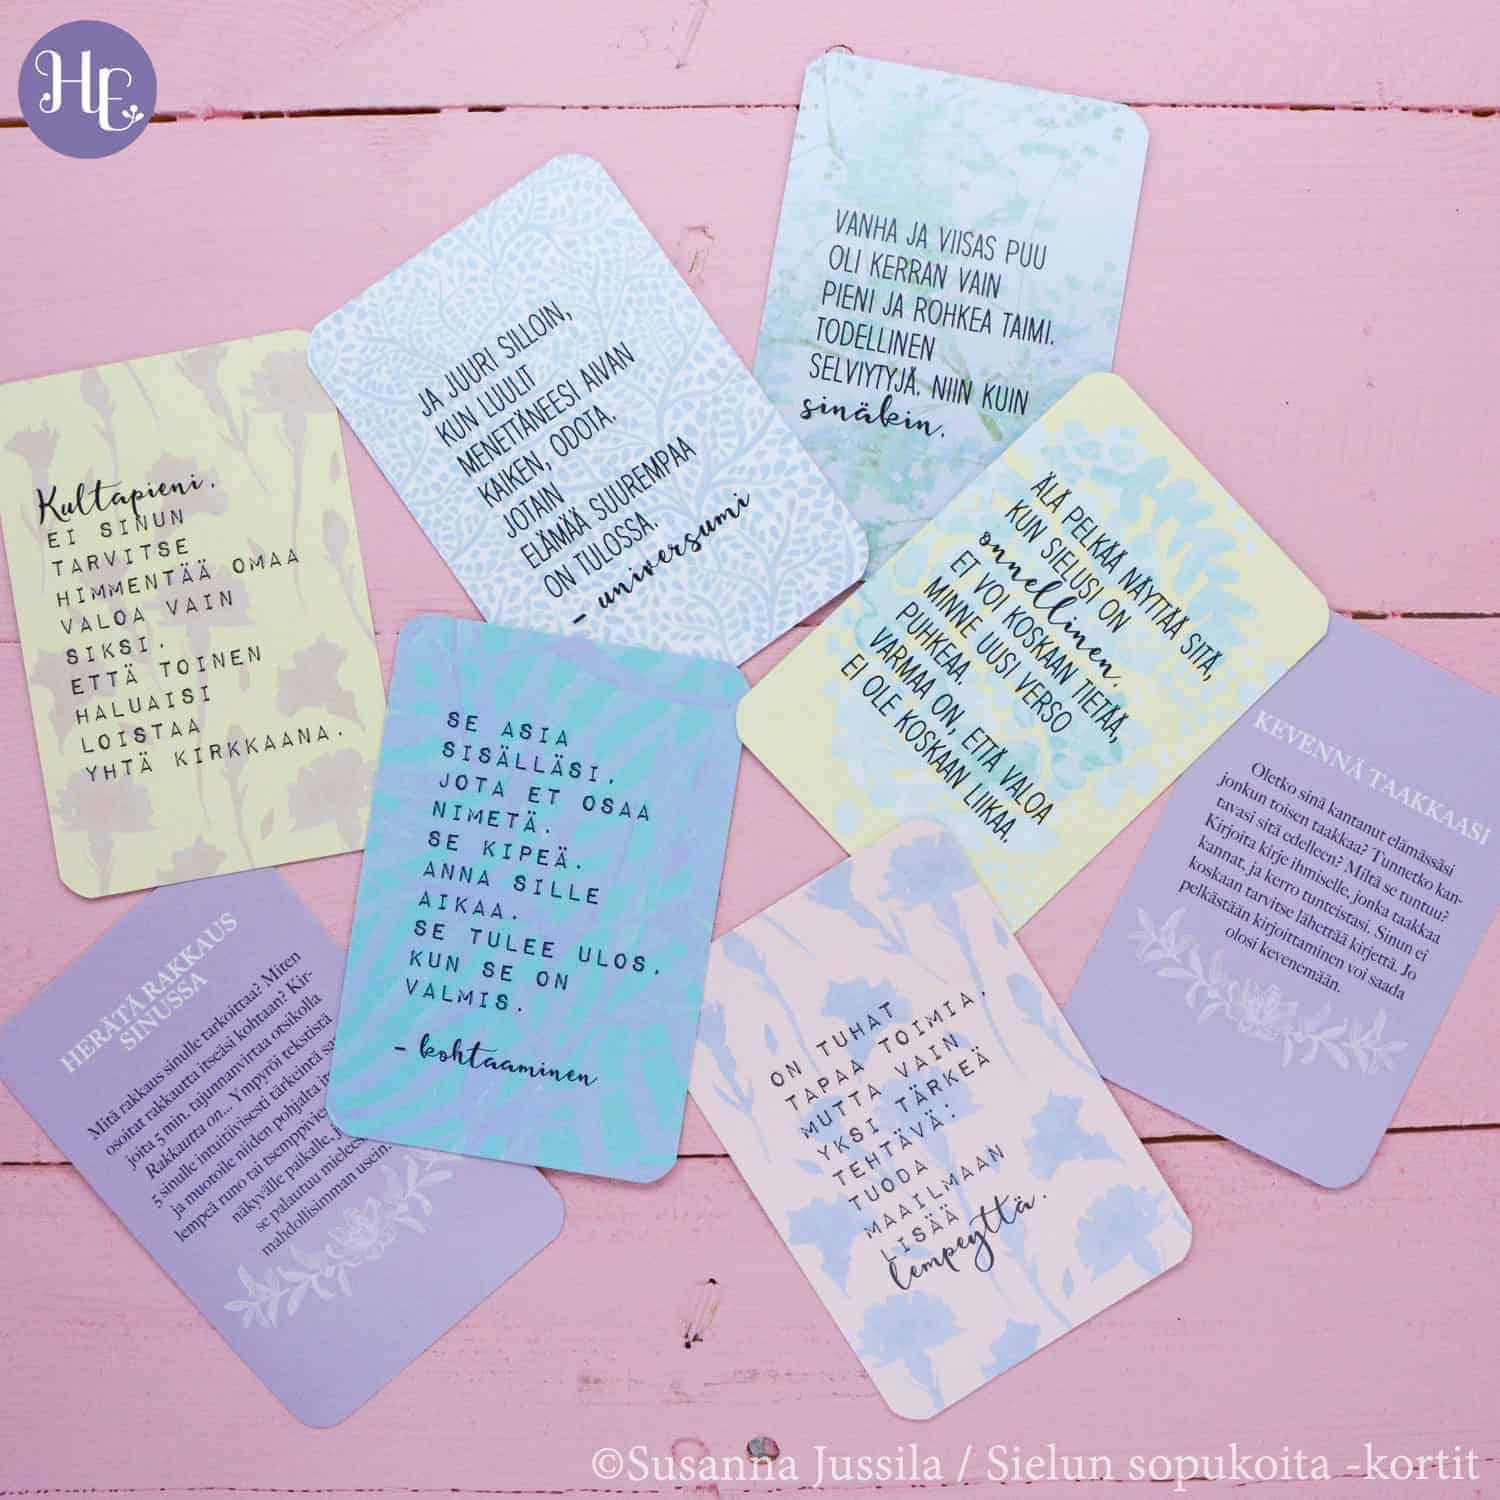 HE
VANHA JA VIISAS PUU
OLI KERRAN VAIN
PIENI JA ROHKEA TAIMI.
TODELLINEN
SELVIYTYJÄ. NIIN KUIN
sinäkin.
JA JUURI SILLOIN,
KUN LUULIT
MENETTÄNEESI AIVAN
KAIKEN, ODOTA.
JOTAIN
ELÄMÄÄ SUUREMPAA
ON TULOSSA.
- universumi
Kultapieni.
EI SINUN
TARVITSE
HIMMENTÄÄ OMAA
VALOA VAIN
SIKSI.
ETTÄ TOINEN
HALUAISI
LOISTAA
YHTÄ KIRKKAANA.
ÄLÄ PELKÄÄ NÄYTTÄÄ SITÄ,
KUN SIELUSI ON
onnellinen.
ET VOI KOSKAAN TIETÄÄ,
MINNE UUSI VERSO
PUHKEAA.
VARMAA ON, ETTÄ VALOA
EI OLE KOSKAAN LIIKAA.
SE ASIA
SISÄLLÄSI.
JOTA ET OSAA
NIMETÄ.
SE KIPEÄ.
ANNA SILLE
AIKAA.
SE TULEE ULOS.
KUN SE ON
VALMIS.
- kohtaaminen
KEVENNÄ TAAKKAASI
Oletko sinä kantanut elämässäsi
jonkun toisen taakkaa? Tunnetko kan-
tavasi sitä edelleen? Miltä se tuntuu?
Kirjoita kirje ihmiselle, jonka taakkaa
kannat, ja kerro tunteistasi. Sinun ei
koskaan tarvitse lähettää kirjettä. Jo
pelkästään kirjoittaminen voi saada
olosi kevenemään.
HERÄTÄ RAKKAUS
SINUSSA
Mitä rakkaus sinulle tarkoittaa? Miten
osoitat rakkautta itseäsi kohtaan? Kir-
joita 5 min. tajunnanvirtaa otsikolla
Rakkautta on... Ympyröi tekstistä
5 sinulle intuitiivisesti tärkeintä sa
ja muotoile niiden pohjalta
lempeä runo tai tsemppivie
näkyvälle paikalle,
se palautuu mielees
mahdollisimman usein.
ON TUHAT
TAPAA TOIMIA.
MUTTA VAIN
YKSI TÄRKEÄ
TEHTÄVÄ:
TUODA
MAAILMAAN
LISÄÄ
lempeyttä.
©Susanna Jussila / Sielun sopukoita -kortit